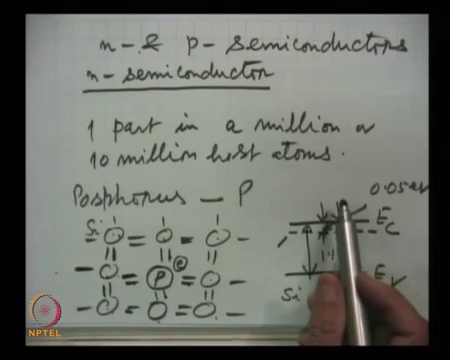 n- & p- semiconductors
n- semiconductor
1 part in a million or
10 million host atoms.
Posphorus — P
0.05 eV
Si
E_C
e
P
1.1
Si
E_V
NPTEL